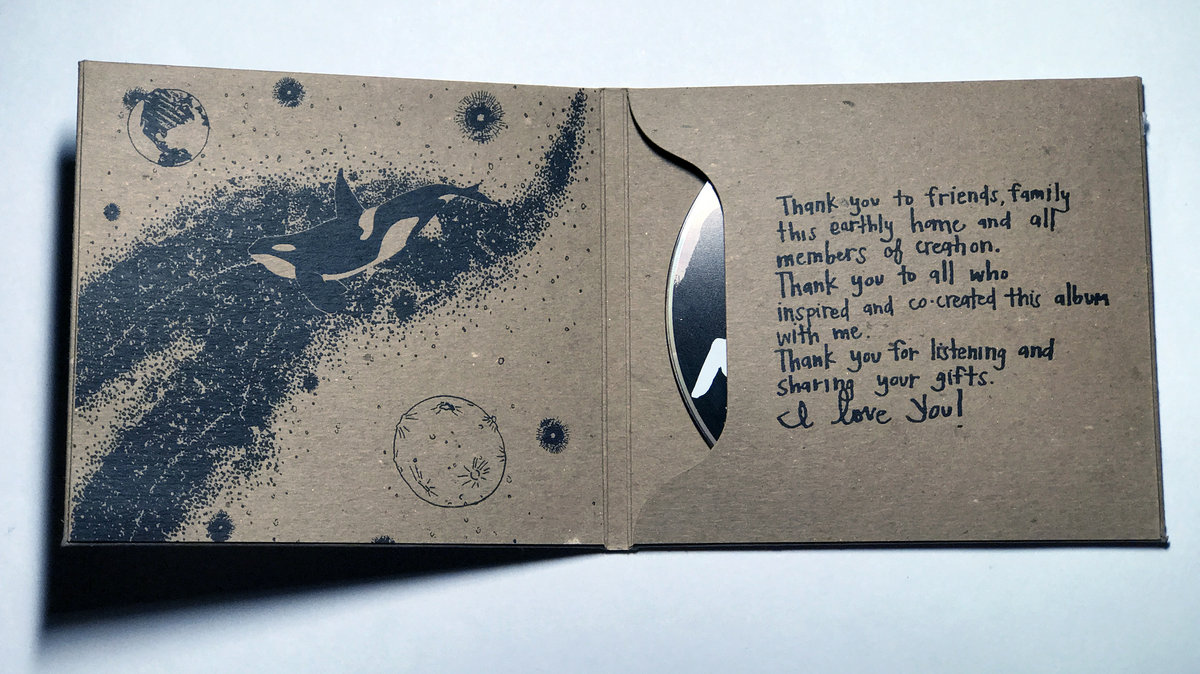 Thank you to friends, family
this earthly home and all
members of creation.
Thank you to all who
inspired and co-created this album
with me.
Thank you for listening and
sharing your gifts.
I love you!